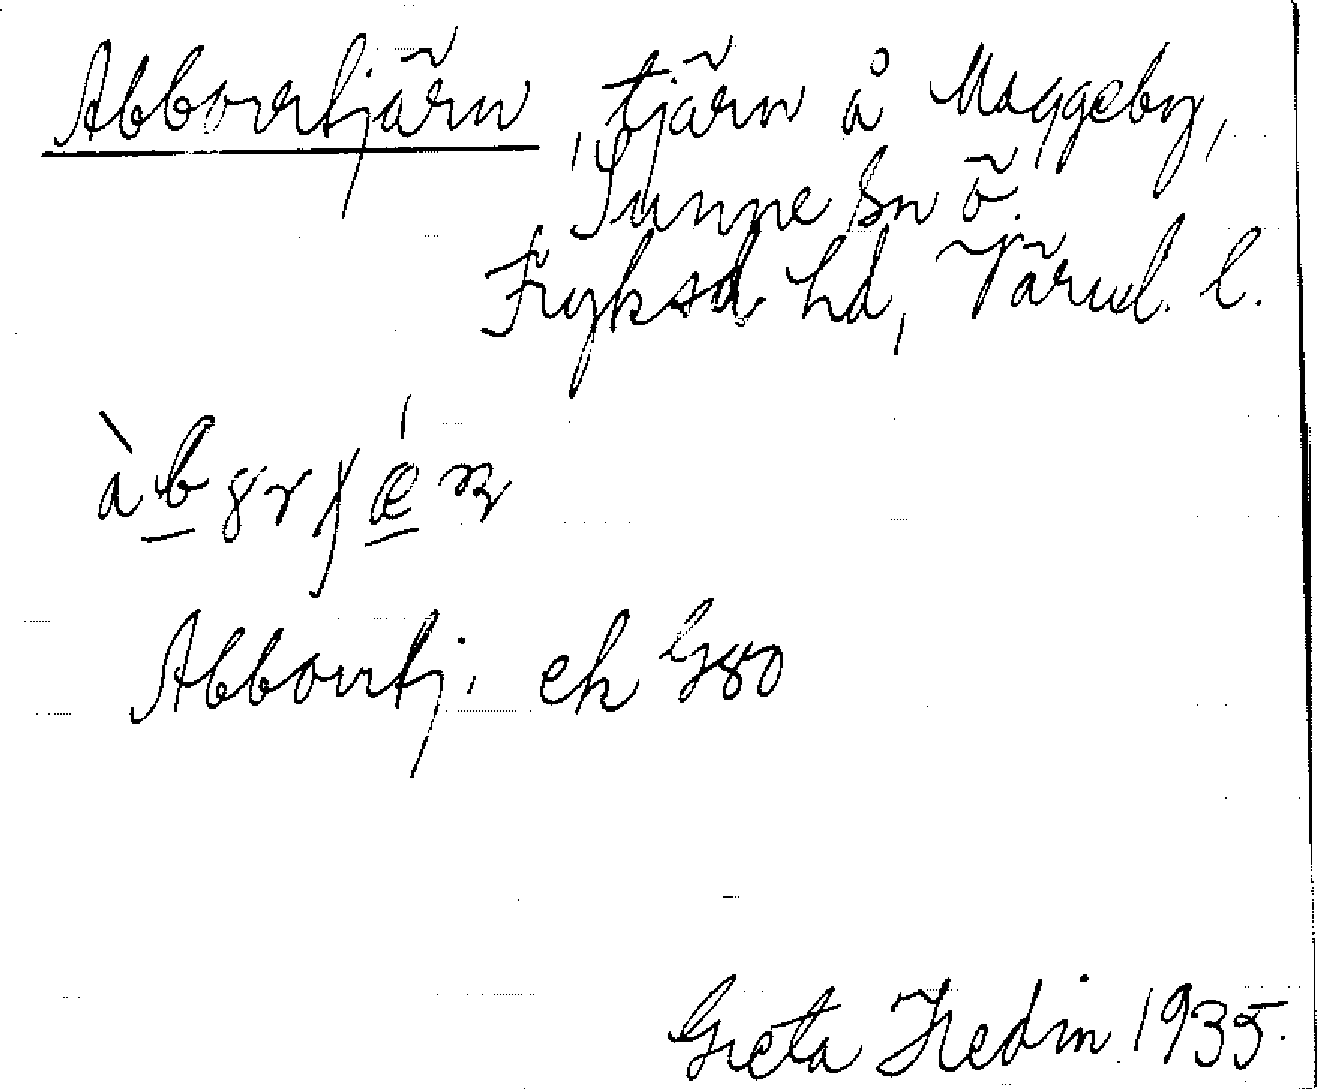 Abborrtjärn, tjärn å Maggeby,
Sunne sn ö.
Fryksd hd, Värml. l.
Abborrtj. ek G80
Greta Hedin 1935.